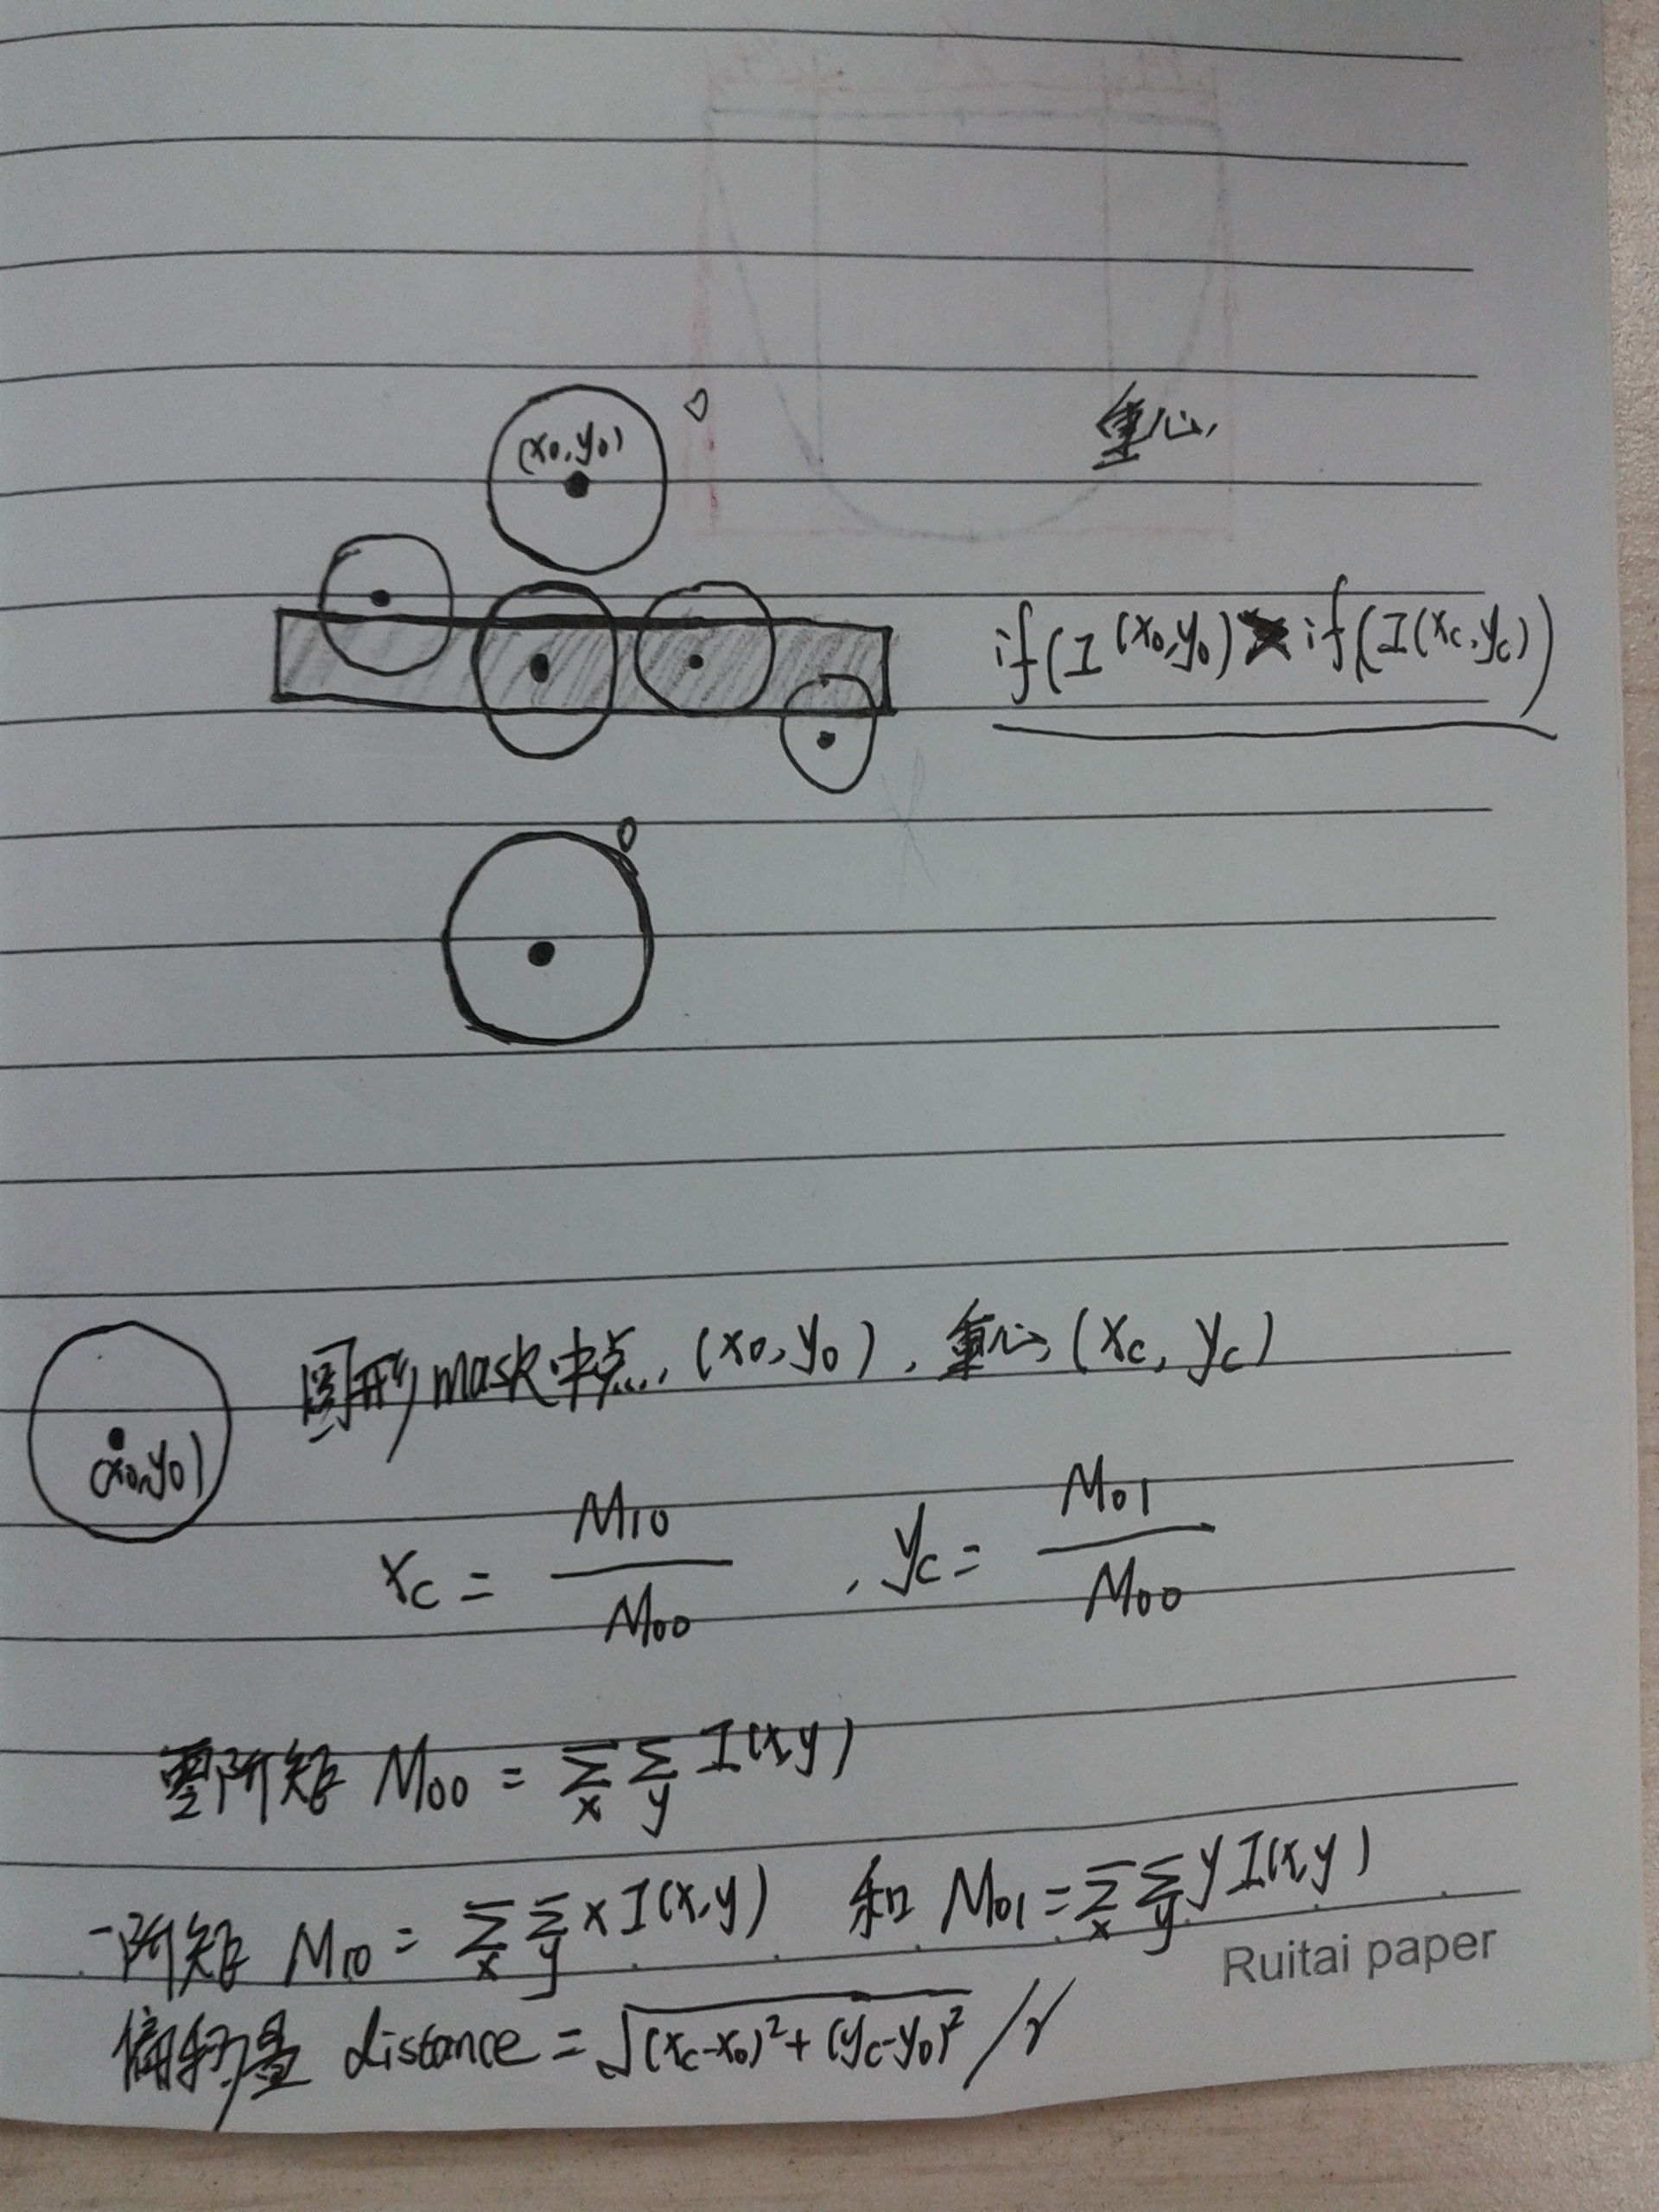 0
(x₀, y₀)
重心,
if(I(x₀,y₀) if(I(xc,yc))
0
圆形mask中点, (x₀, y₀), 重心, (xc, yc)
(x₀,y₀)
xc = M₁₀ / M₀₀ , yc = M₀₁ / M₀₀
零阶矩 M₀₀ = ∑x ∑y I(x,y)
一阶矩 M₁₀ = ∑x ∑y x I(x,y) 和 M₀₁ = ∑x ∑y y I(x,y)
Ruitai paper
偏移量 distance = √((xc-x₀)² + (yc-y₀)²) / r